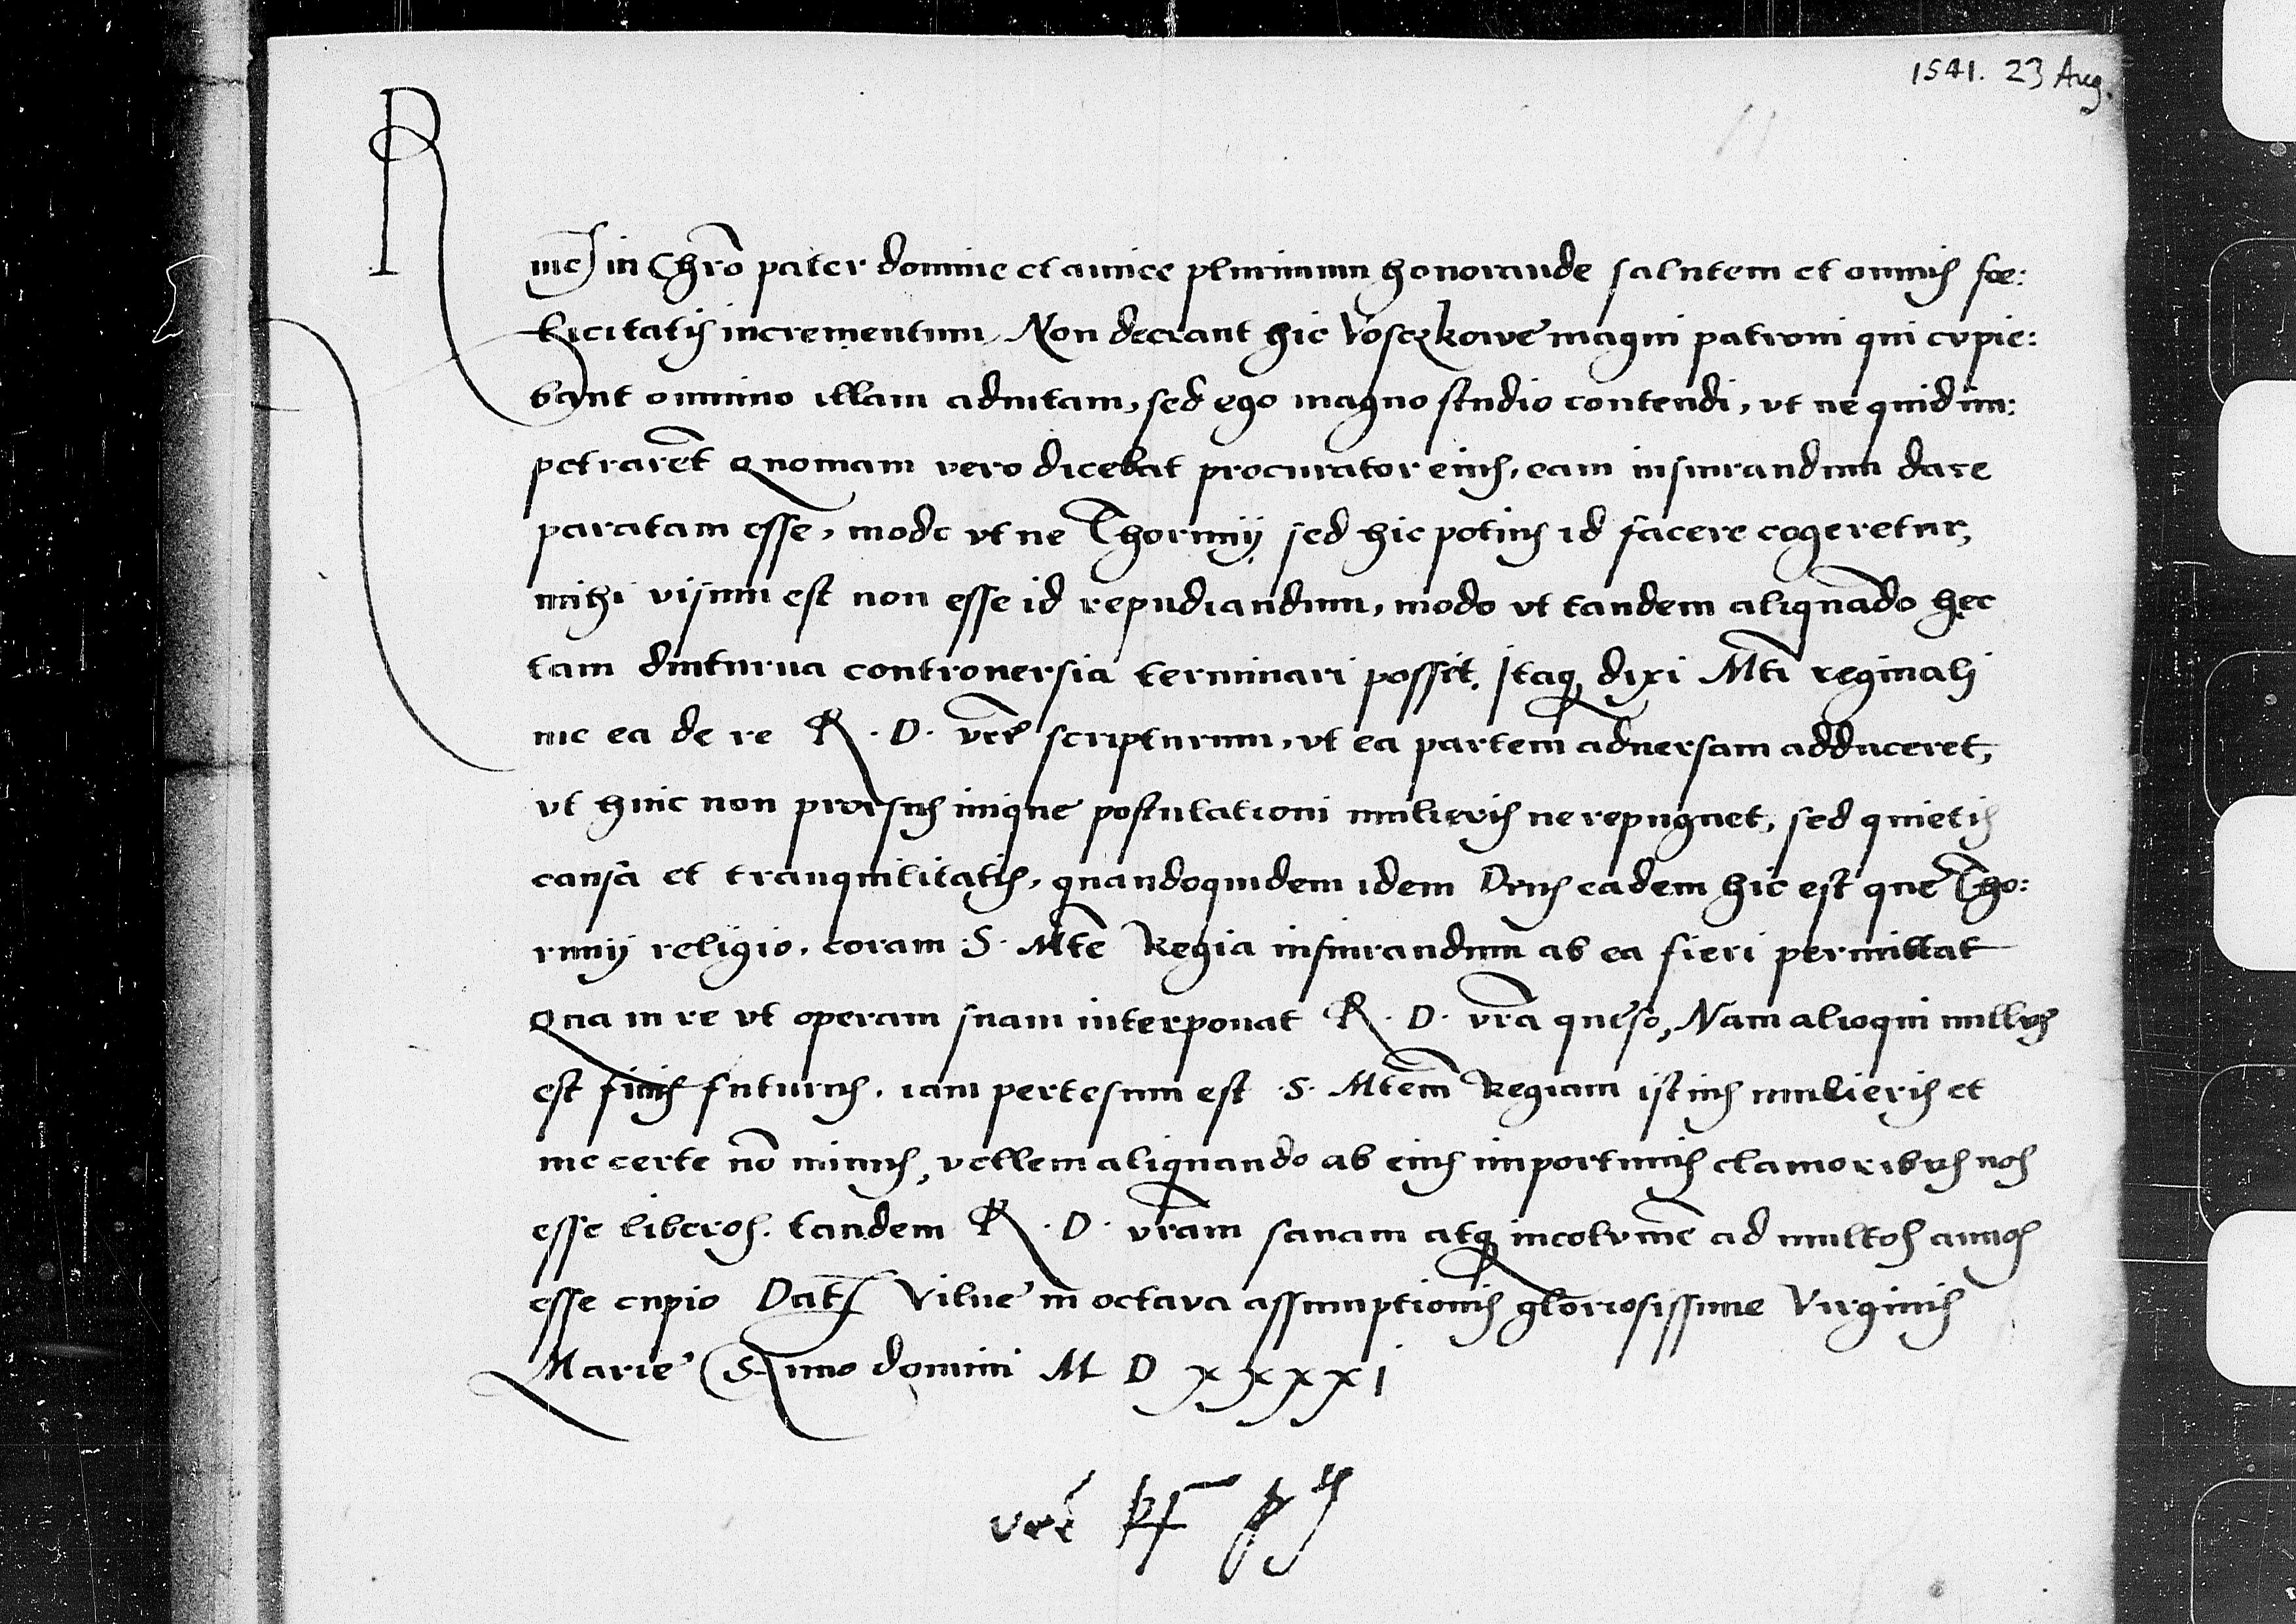 1541. 23 Aug.
Rme in Chro pater domine et amice plurimum honorande salutem et omnis foe:
licitatis incrementum, Non deerant hic Vosczkowe magni patroni qui cvpie:
bant omnino illam adiutam, sed ego magno studio contendi, vt ne quid im:
petrarent Quoniam vero dicebat procurator eius, eam iusiurandum dare
paratam esse, modo vt ne Thorunij sed hic potius id facere cogeretur,
mihi visum est non esse id repudiandum, modo vt tandem aliquado hęc
tam diuturna controuersia terminari possit. Itaq dixi Mti reginali
me ea de re R. D. vre scripturum, vt ea partem aduersam adduceret,
vt huic non prorsus inique postulationi mulieris ne repugnet, sed quietis
causa et tranquilitatis, quandoquidem idem Deus eadem hic est que Tho:
runij religio, coram S. Mte Regia iusiurandum ab ea fieri permittat
Qua in re vt operam suam interponat R. D. vra queso, Nam alioqui nullvs
est finis futurus. iam pertesum est S. Mtem Regiam istius mulieris et
me certe no minus, vellem aliquando ab eius importunis clamoribvs nos
esse liberos. tandem R. D. vram sanam atq incolvme ad multos annos
esse cupio Dat Vilne in octava assumptionis gloriosissime Virginis
Marie Anno domini M D XXXXI
vre